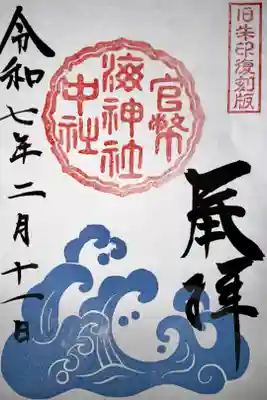 旧朱印復刻版
奉拝
官幣
海神社
中社
令和七年二月十一日